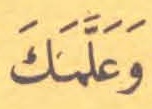 وَعَلَّمَنَكَ